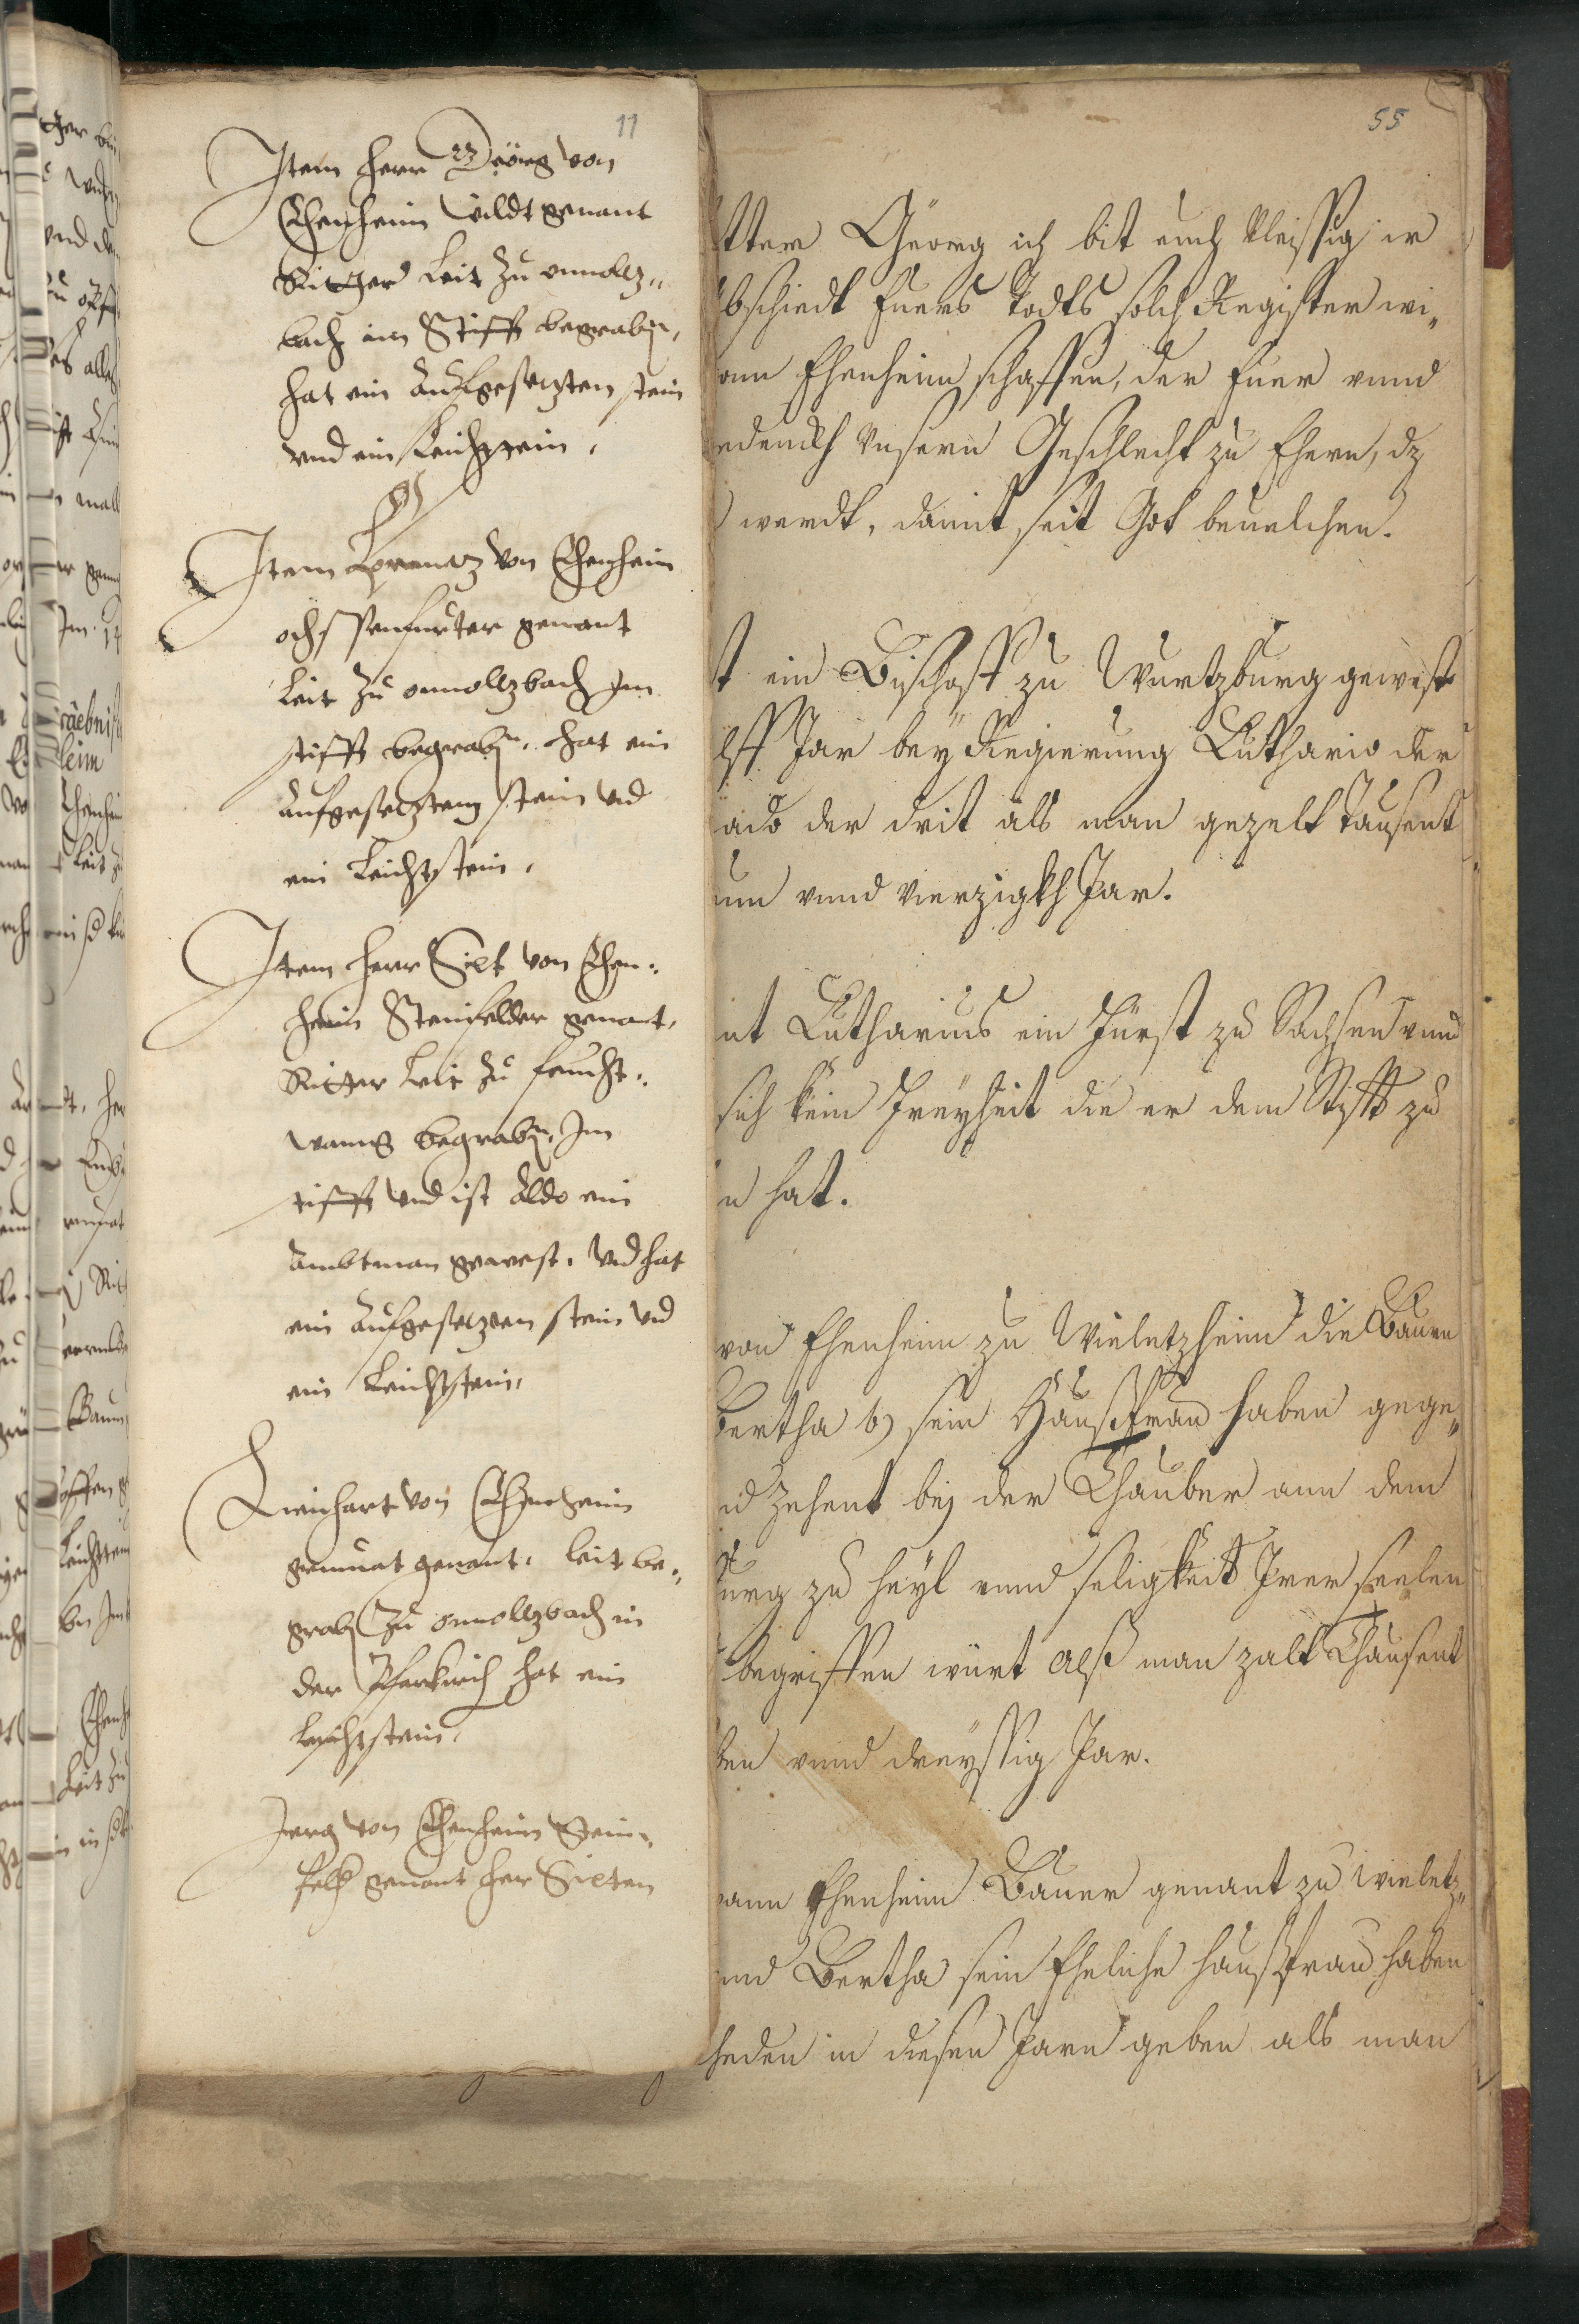 11
Item herr Geörg von
Ehenheim wildt genant
Ritter leit zu onnoltz„
bach im Stifft begraben,
hat ein aufgesetzten stein
vnd ein Leichstein,
Item Lorentz von Ehenheim
ochssenfurter genant
leit zu onnoltzbach Im
stifft begraben. hat ein
aufgesetzten stein vnd
ein Leichstein,
Item herr Sixt von Ehen„
heim Steinfelder genant,
Ritter leit zu feucht„
wang begraben, Im
stifft vnd ist aldo ein
ambtman gewest. vnd hat
ein aufgesetzten stein vnd
ein Leichstein,
Reinhart von Ehenheim
genant. leit be„
graben zu onnoltzbach in
der Pfarkirch hat ein
leichstein,
Jerg von Ehenheim Stein„
genant her Sixten
55
tter Geörg ich bit euch vleissig ir
bschiedt Euers Todts solch Register wi„
ann Ehenheim schaffen, der Euer vnnd
edenckh vnsern Geschlecht zu Ehern, dz
werdt, damit seit Got beuelchen.
t ein Bischoff zu Wurtzburg gewest
lff Jar bey Regierung Luthario der
ado der drit als man gezelt Tausent
um vnnd vierzigkh Jar.
nt Lutharius ein Fürst zu Sachsen vnnd
sich kein Freyheit die er dem Stifft zu
n hat.
von Ehenheim zu Wieletzheim die Bauen
Bertha sein Haußfrau haben gege„
nd zehent bej der Thauber ann dem
urg zu heyl vnnd seligkeit Irer seelen
begriffen würt Alß man zalt Thausent
ten vnnd dreyssig Jar.
ann Ehenheim Bauer genant zu Wieletz„
nnd Bertha sein Eheliche haußfrau haben
heden in diesen Jarn geben als man